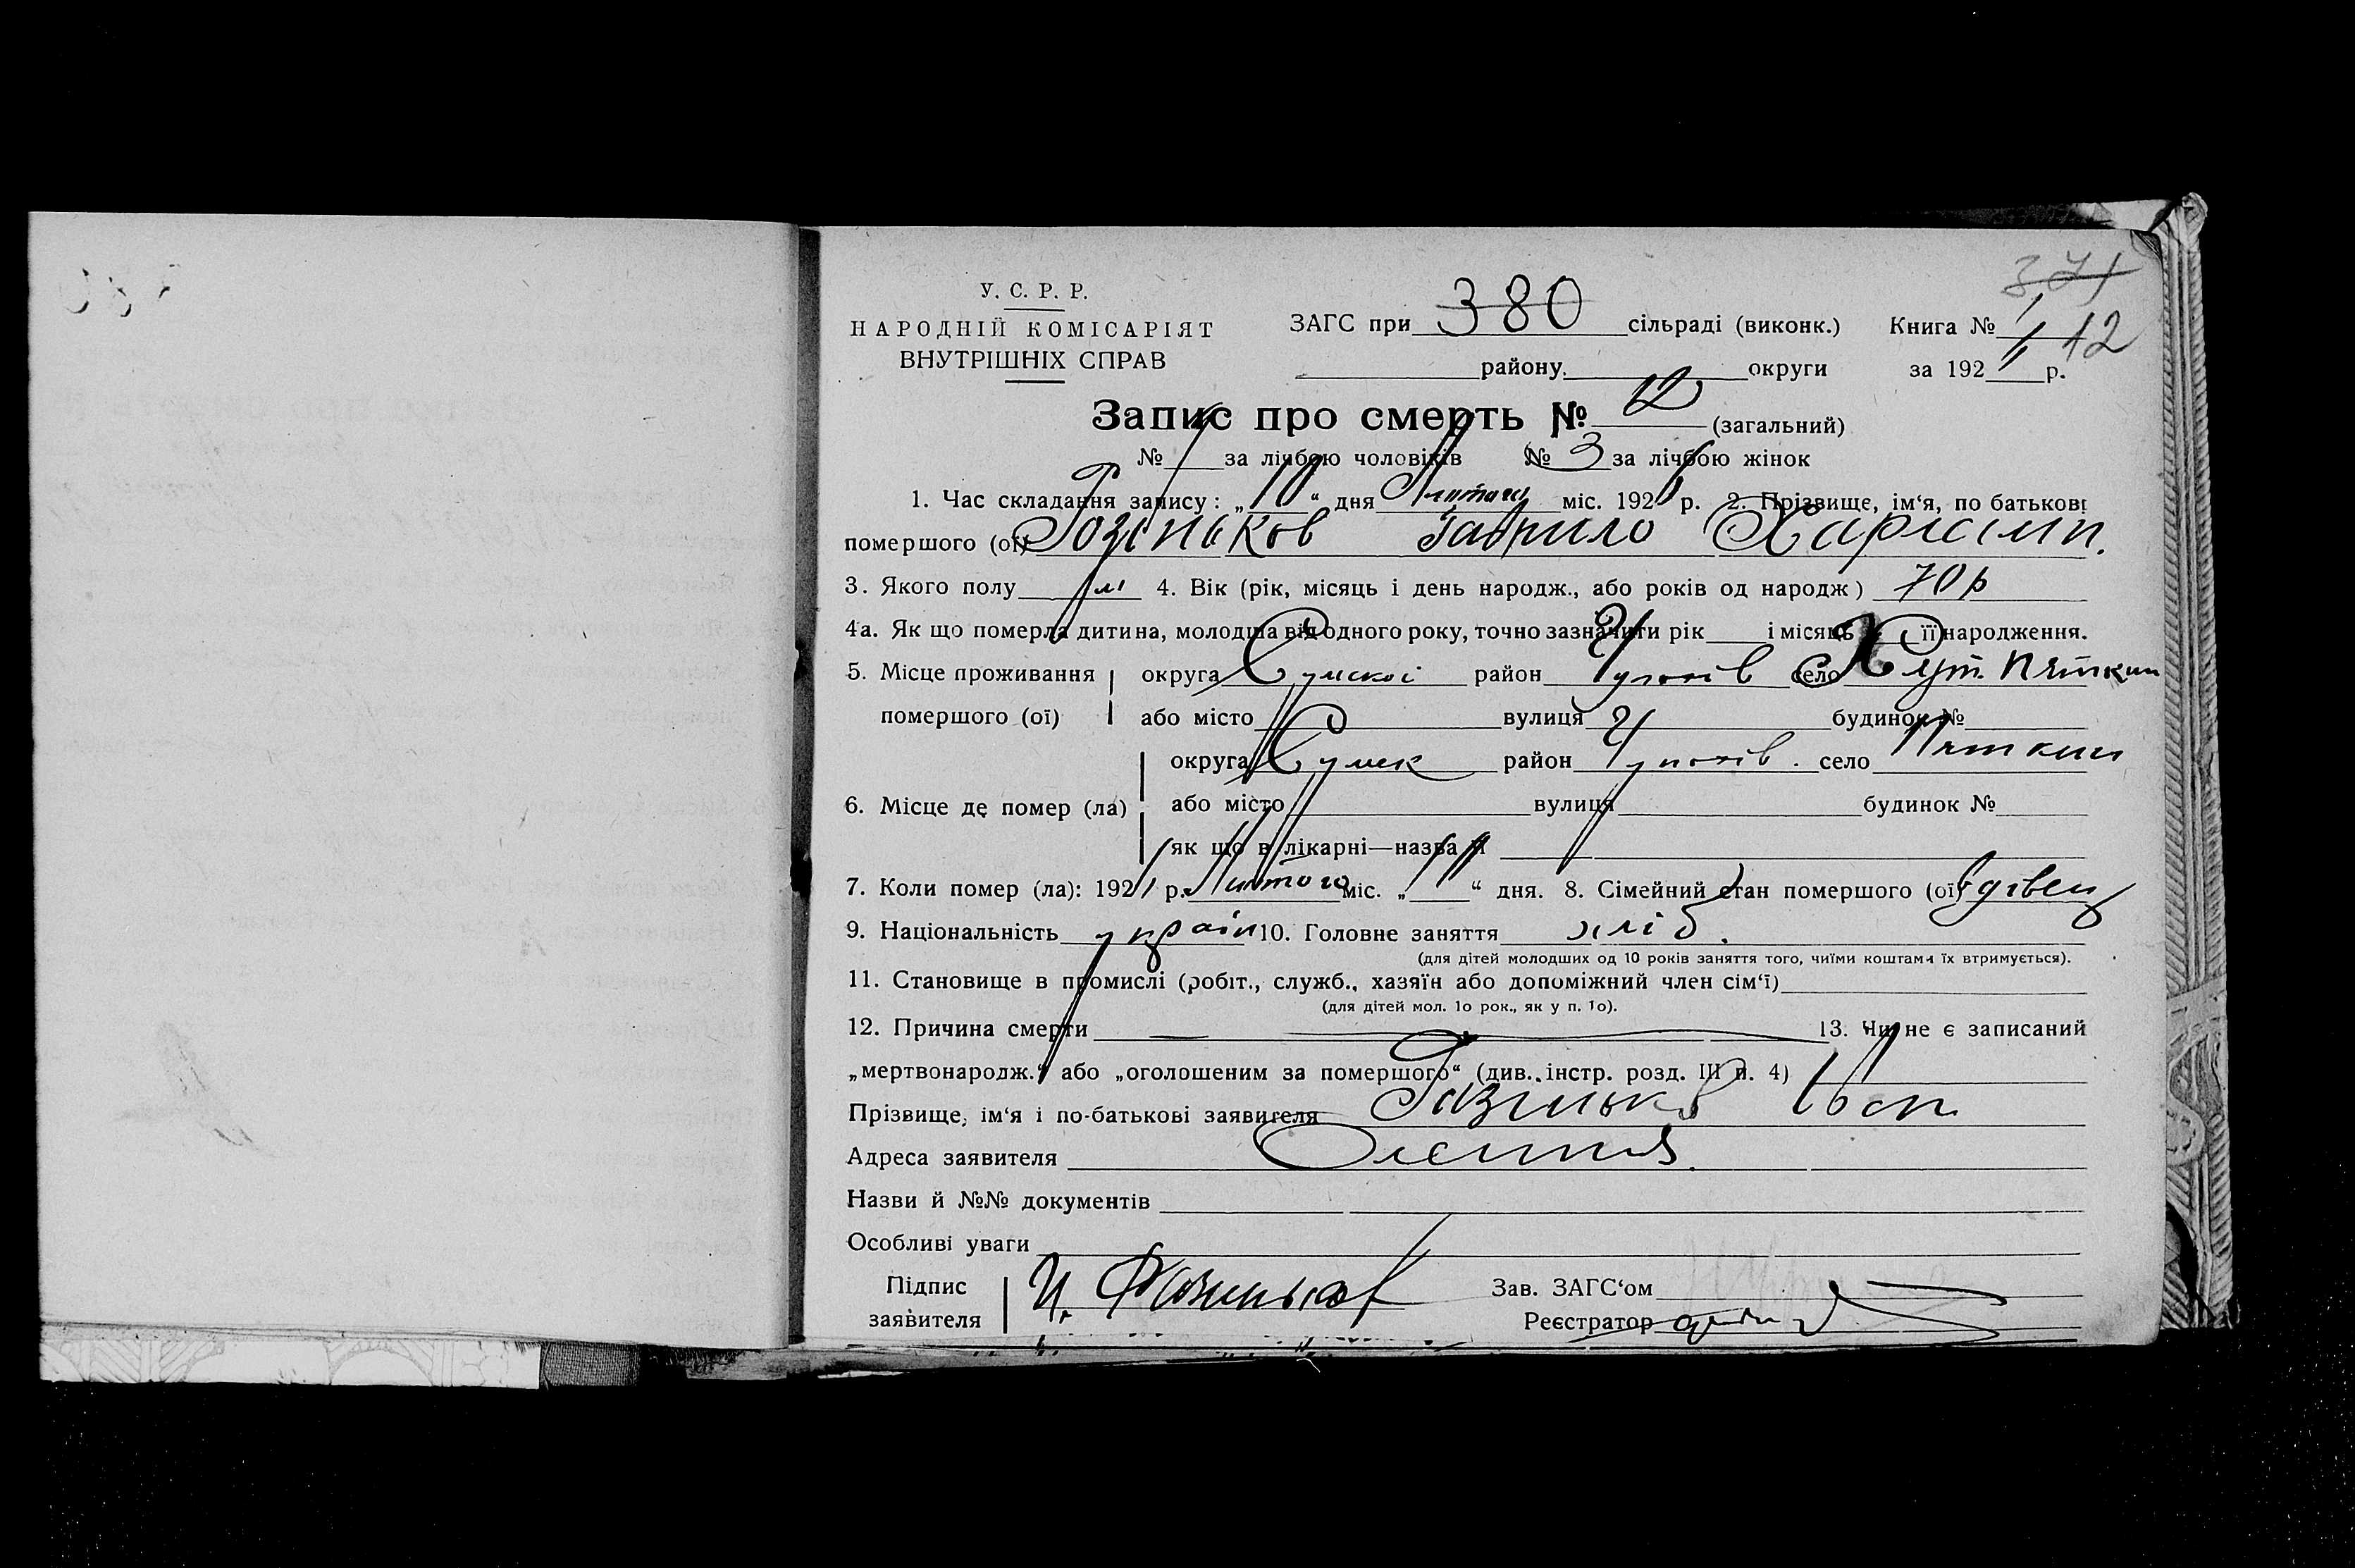 371
У. С. Р. Р.
НАРОДНІЙ КОМІСАРІЯТ
ВНУТРІШНІХ СПРАВ
ЗАГС при 380 сільраді (виконк.) Книга №
району округи за 192 р. 12
Запис про смерть № 12 (загальний)
№ за лічбою чоловіків № 3 за лічбою жінок
1. Час складання запису: „10“ дня Лютого міс. 192 р. 2. Прізвище, ім‘я, по батькові
помершого (ої) Гаврило Харламп.
3. Якого полу м 4. Вік (рік, місяць і день народж., або років од народж) 70 р
4а. Як що померла дитина, молодша від одного року, точно зазначити рік і місяць її народження.
5. Місце проживання округа Сумскоі район село Хут. Пяткин
помершого (ої) або місто вулиця будинок №
округа Сумск район село Пяткин
6. Місце де помер (ла) або місто вулиця будинок №
як що в лікарні—назва її
7. Коли помер (ла): 192 р. Лютого міс. „ “ дня. 8. Сімейний стан помершого (ої) вдівец
9. Національність україн 10. Головне заняття хліб.
(для дітей молодших од 10 років заняття того, чиїми коштами їх втримується).
11. Становище в промислі (робіт., служб., хазяїн або допоміжний член сім‘ї)
(для дітей мол. 10 рок., як у п. 10).
12. Причина смерти — 13. Чи не є записаний
„мертвонародж.“ або „оголошеним за помершого“ (див. інстр. розд. III п. 4)
Прізвище, ім‘я і по-батькові заявителя
Адреса заявителя
Назви й №№ документів
Особливі уваги
Підпис
заявителя
Зав. ЗАГС‘ом
Реєстратор